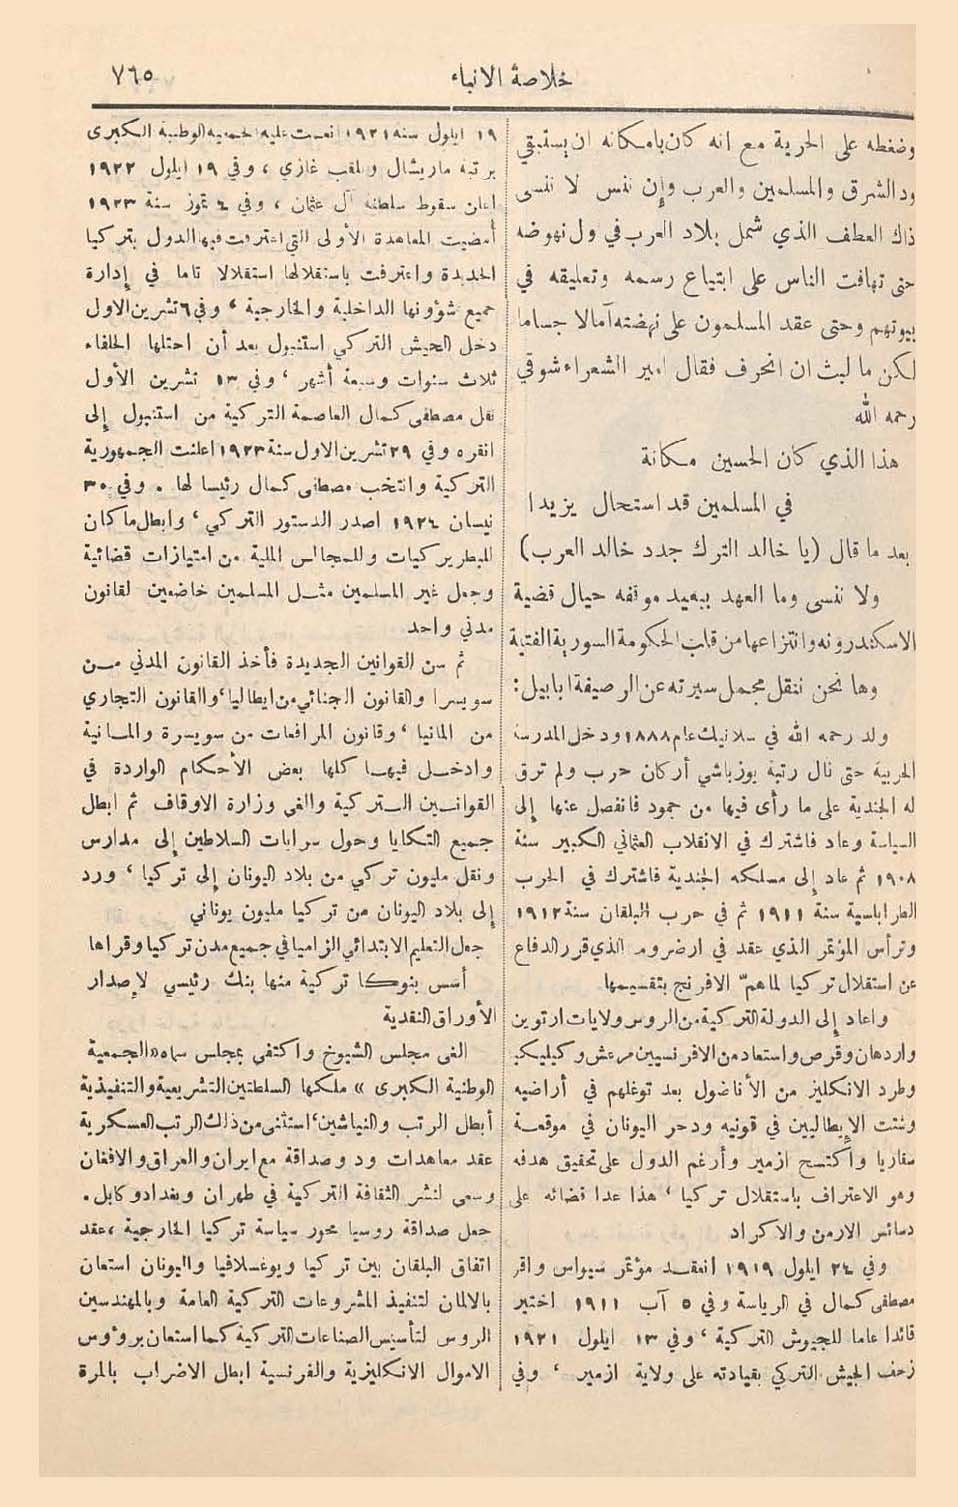 خلاصة الانباء
٧٦٥
وضغطه على الحرية مع انه كان بامكانه ان يستبقي
ود الشرق والمسلمين والعرب وإن ننس لا ننسى
ذاك العطف الذي شمل بلاد العرب في ول نهوضه
حتى تهافت الناس على ابتياع رسمه وتعليقه في
بيوتهم وحتى عقد المسلمون على نهضته آمالا جساما
لكن ما لبث ان انحرف فقال امير الشعراء شوقي
رحمه الله
هذا الذي كان الحسين مكانة
في المسلمين قد استحال يزيدا
بعد ما قال (يا خالد الترك جدد خالد العرب)
ولا ننسى وما العهد ببعيد موقفه حيال قضية
الاسكندرونه وانتزاعها من قلب الحكومة السورية الفتية
وها نحن ننقل مجمل سيرته عن الرصيفة ابابيل:
ولد رحمه الله في سلانيك عام ١٨٨٨ ودخل المدرسة
الحربية حتى نال رتبة يوزباشي أركان حرب ولم ترق
له الجندية على ما رأى فيها من جمود فانفصل عنها إلى
السياسة وعاد فاشترك في الانقلاب العثماني الكبير سنة
١٩٠٨ ثم عاد إلى مسلكه الجندية فاشترك في الحرب
الطرابلسية سنة ١٩١١ ثم في حرب البلقان سنة ١٩١٢
وترأس المؤتمر الذي عقد في ارضروم الذي قرر الدفاع
عن استقلال تركيا لما همّ الافرنج بتقسيمها
واعاد إلى الدولة التركية من الروس ولايات ارتوين
واردهان وقرص واستعاد من الافرنسيين مرعش وكيليكيا
وطرد الانكليز من الأناضول بعد توغلهم في أراضيه
وشتت الإيطاليين في قونيه ودحر اليونان في موقعة
سقاريا واكتسح ازمير وأرغم الدول على تحقيق هدفه
وهو الاعتراف باستقلال تركيا ، هذا عدا قضائه على
دسائس الارمن والاكراد
وفي ٢٤ ايلول ١٩١٩ انعقد مؤتمر سيواس واقر
مصطفى كمال في الرياسة وفي ٥ آب ١٩١١ اختير
قائدا عاما للجيوش التركية ، وفي ١٣ ايلول ١٩٢١
زحف الجيش التركي بقيادته على ولاية ازمير ، وفي
١٩ ايلول سنة ١٩٢١ انعمت عليه الجمعية الوطنية الكبرى
برتبة ماريشال وبلقب غازي ، وفي ١٩ ايلول ١٩٢٢
اعلن سقوط سلطنة آل عثمان ، وفي ٤ تموز سنة ١٩٢٣
أمضيت المعاهدة الأولى التي اعترفت فيها الدول بتركيا
الجديدة واعترفت باستقلالها استقلالا تاما في إدارة
جميع شؤونها الداخلية والخارجية ، وفي ٦ تشرين الاول
دخل الجيش التركي استنبول بعد أن احتلها الحلفاء
ثلاث سنوات وسبعة أشهر ، وفي ١٣ تشرين الأول
نقل مصطفى كمال العاصمة التركية من استنبول إلى
انقره وفي ٢٩ تشرين الاول سنة ١٩٢٣ اعلنت الجمهورية
التركية وانتخب مصطفى كمال رئيسا لها . وفي ٣٠
نيسان ١٩٢٤ اصدر الدستور التركي ، وابطل ما كان
للبطريركيات وللمجالس الملية من امتيازات قضائية
وجعل غير المسلمين مثل المسلمين خاضعين لقانون
مدني واحد
ثم سن القوانين الجديدة فأخذ القانون المدني من
سويسرا والقانون الجنائي من ايطاليا ، والقانون التجاري
من المانيا ، وقانون المرافعات من سويسرة والمانية
وادخل فيها كلها بعض الأحكام الواردة في
القوانين التركية والغى وزارة الاوقاف ثم ابطل
جميع التكايا وحول سرايات السلاطين إلى مدارس
ونقل مليون تركي من بلاد اليونان إلى تركيا ، ورد
إلى بلاد اليونان من تركيا مليون يوناني
جعل التعليم الابتدائي الزاميا في جميع مدن تركيا وقراها
أسس بنوكا تركية منها بنك رئيسي لإصدار
الأوراق النقدية
الغى مجلس الشيوخ واكتفى بمجلس سماه « الجمعية
الوطنية الكبرى » ملكها السلطتين التشريعية والتنفيذية
أبطل الرتب والنياشين ، استثنى من ذلك الرتب العسكرية
عقد معاهدات ود وصداقة مع ايران والعراق والافغان
وسعى لنشر الثقافة التركية في طهران وبغداد وكابل .
جعل صداقة روسيا محور سياسة تركيا الخارجية ، عقد
اتفاق البلقان بين تركيا ويوغسلافيا واليونان استعان
بالالمان لتنفيذ المشروعات التركية العامة وبالمهندسين
الروس لتأسيس الصناعات التركية كما استعان برؤوس
الاموال الانكليزية والفرنسية ابطل الاضراب بالمرة